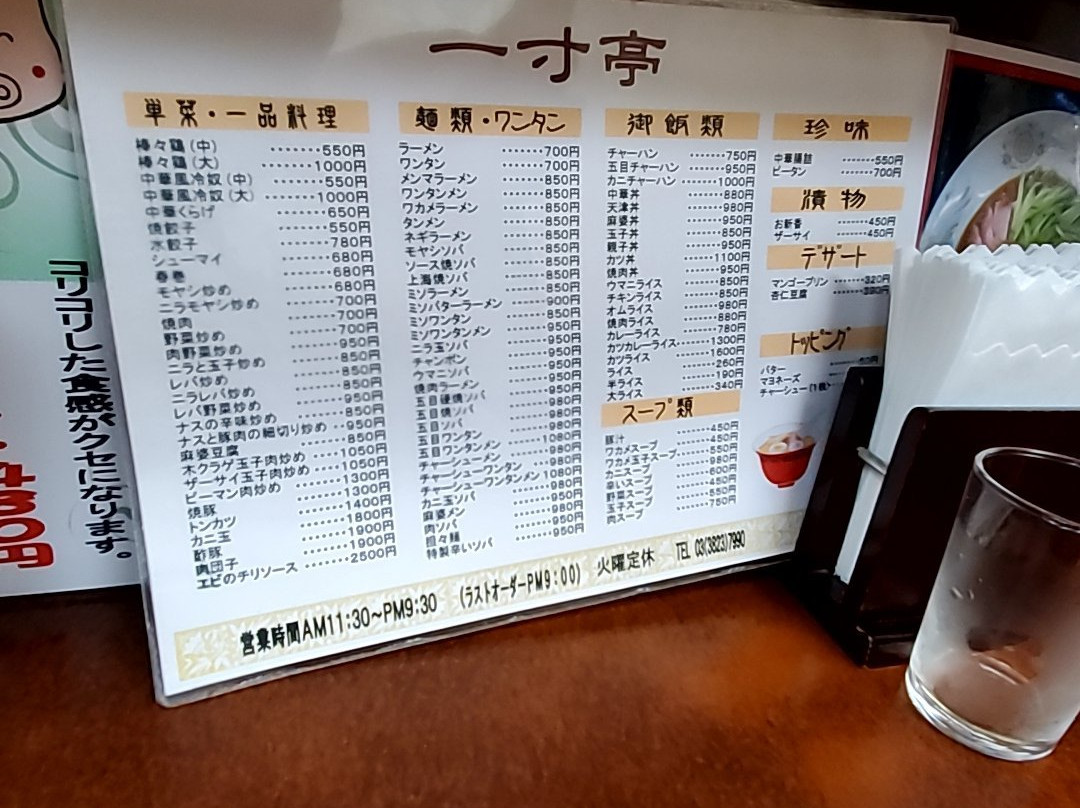 一寸亭
単菜・一品料理
棒々鶏(中) ‥‥‥‥550円
棒々鶏(大) ‥‥‥‥1000円
中華風冷奴(中) ‥‥‥‥550円
中華風冷奴(大) ‥‥‥‥1000円
中華くらげ ‥‥‥‥650円
焼餃子 ‥‥‥‥550円
水餃子 ‥‥‥‥780円
シューマイ ‥‥‥‥680円
春巻 ‥‥‥‥680円
モヤシ炒め ‥‥‥‥680円
ニラモヤシ炒め ‥‥‥‥700円
焼肉
野菜炒め
肉野菜炒め
ニラと玉子炒め
レバ炒め
ニラレバ炒め
レバ野菜炒め
ナスの辛味炒め
ナスと豚肉の細切り炒め
麻婆豆腐
木クラゲ玉子肉炒め ‥‥‥‥1050円
ザーサイ玉子肉炒め ‥‥‥‥1050円
ピーマン肉炒め ‥‥‥‥1300円
焼豚 ‥‥‥‥1300円
トンカツ ‥‥‥‥1400円
カニ玉 ‥‥‥‥1800円
酢豚 ‥‥‥‥1900円
肉団子 ‥‥‥‥1900円
エビのチリソース ‥‥‥‥2500円
麺類・ワンタン
ラーメン ‥‥‥‥700円
ワンタン ‥‥‥‥700円
メンマラーメン ‥‥‥‥850円
ワンタンメン ‥‥‥‥850円
ワカメラーメン ‥‥‥‥850円
タンメン ‥‥‥‥850円
ネギラーメン ‥‥‥‥850円
モヤシソバ ‥‥‥‥850円
ソース焼ソバ ‥‥‥‥850円
上海焼ソバ ‥‥‥‥850円
ミソラーメン ‥‥‥‥850円
ミソバターラーメン ‥‥‥‥900円
ミソワンタン ‥‥‥‥850円
ミソワンタンメン ‥‥‥‥950円
ニラ玉ソバ ‥‥‥‥950円
チャンポン ‥‥‥‥950円
ウマニソバ ‥‥‥‥950円
焼肉ラーメン ‥‥‥‥950円
五目硬焼ソバ ‥‥‥‥980円
五目焼ソバ ‥‥‥‥980円
五目ソバ ‥‥‥‥980円
五目ワンタン ‥‥‥‥980円
五目ワンタンメン ‥‥‥‥1080円
チャーシューメン ‥‥‥‥980円
チャーシューワンタンメン ‥‥‥‥1080円
カニ玉ソバ ‥‥‥‥980円
麻婆メン ‥‥‥‥950円
肉ソバ ‥‥‥‥980円
坦々麺 ‥‥‥‥950円
特製辛いソバ ‥‥‥‥950円
御飯類
チャーハン ‥‥‥‥750円
五目チャーハン ‥‥‥‥950円
カニチャーハン ‥‥‥‥1000円
中華丼 ‥‥‥‥880円
天津丼 ‥‥‥‥980円
麻婆丼 ‥‥‥‥950円
玉子丼 ‥‥‥‥850円
親子丼 ‥‥‥‥950円
カツ丼 ‥‥‥‥1100円
焼肉丼 ‥‥‥‥950円
ウマニライス ‥‥‥‥850円
チキンライス ‥‥‥‥850円
オムライス ‥‥‥‥980円
焼肉ライス ‥‥‥‥880円
カレーライス ‥‥‥‥780円
カツカレーライス ‥‥‥‥1300円
カツライス ‥‥‥‥1600円
ライス ‥‥‥‥260円
半ライス ‥‥‥‥190円
大ライス ‥‥‥‥340円
スープ類
豚汁 ‥‥‥‥450円
ワカメスープ ‥‥‥‥450円
ワカメ玉子スープ
カニスープ
辛いスープ
野菜スープ ‥‥‥‥450円
玉子スープ ‥‥‥‥550円
肉スープ ‥‥‥‥750円
珍味
中華腸詰 ‥‥‥‥550円
ピータン ‥‥‥‥700円
漬物
お新香 ‥‥‥‥450円
ザーサイ ‥‥‥‥450円
デザート
マンゴープリン ‥‥‥‥320円
杏仁豆腐
トッピング
バター
マヨネーズ
チャーシュー(1枚)
営業時間AM11:30~PM9:30 (ラストオーダーPM9:00) 火曜定休 TEL 03(3823)7990
コリコリした食感がクセになります。
480円